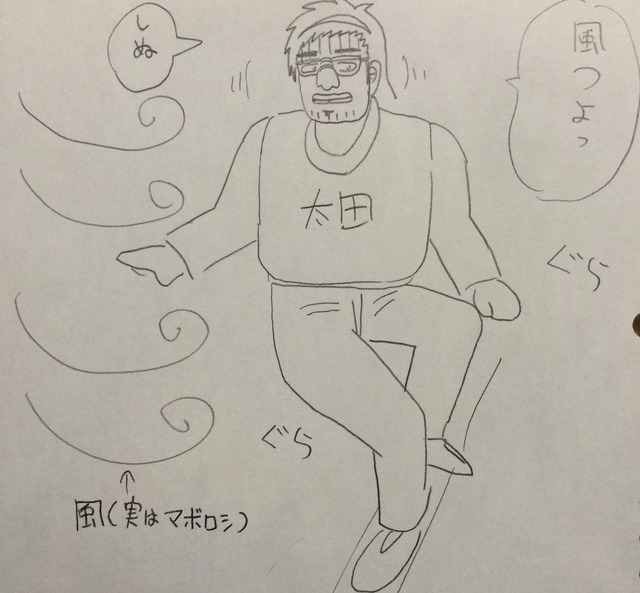 風つよっ
しぬ
太田
ぐら
ぐら
風(実はマボロシ)